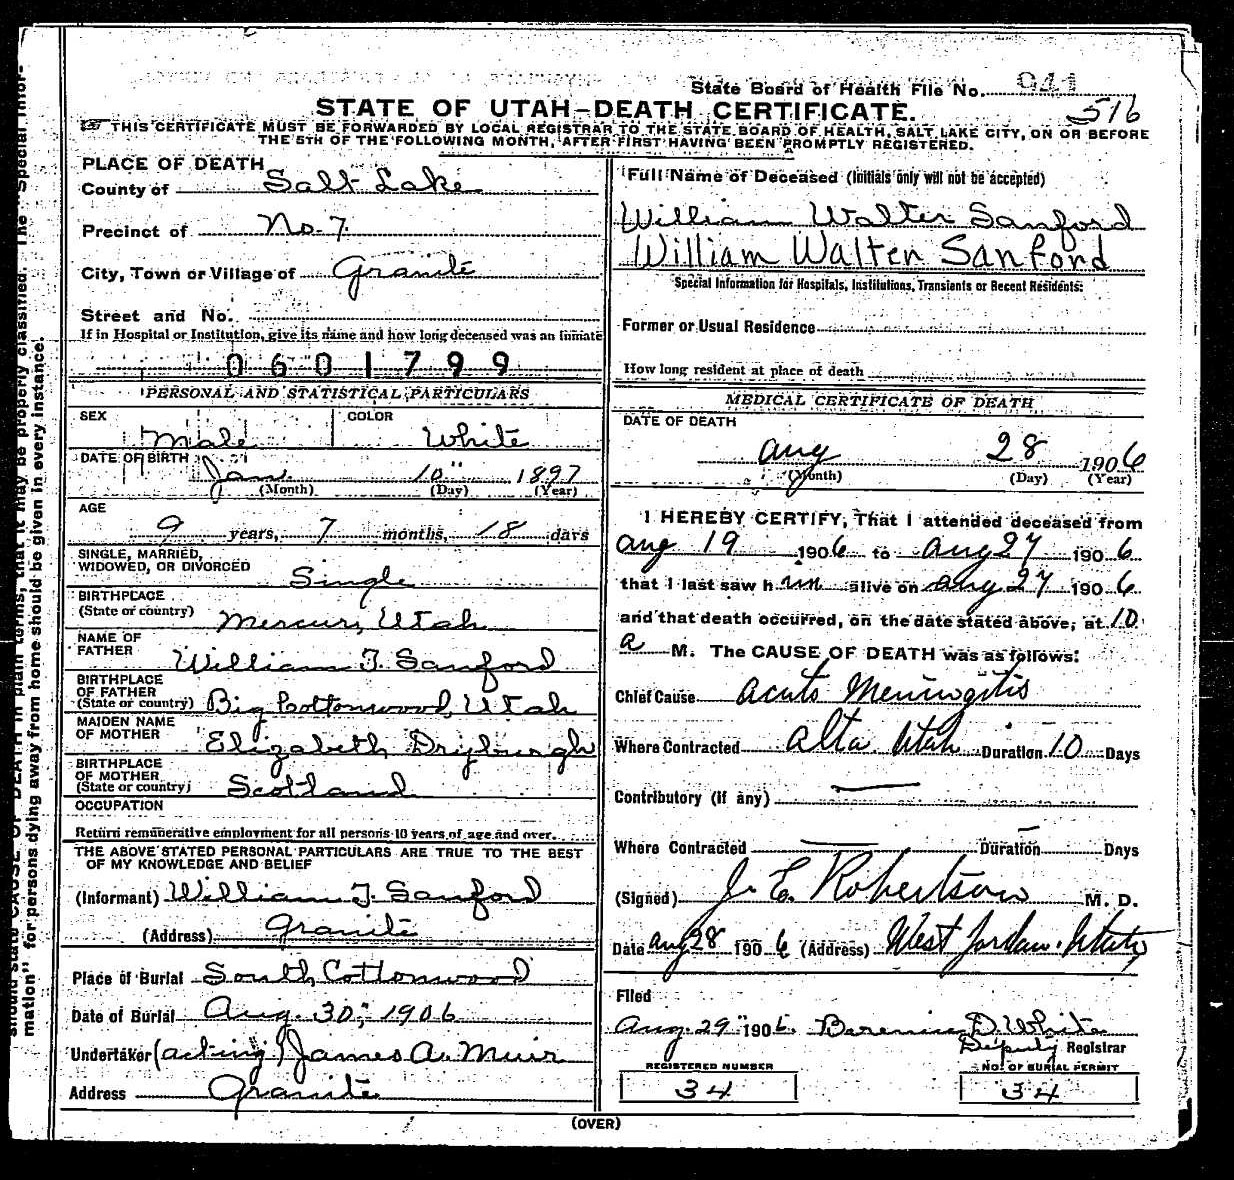 State Board of Health File No. 941
516
STATE OF UTAH—DEATH CERTIFICATE.
THIS CERTIFICATE MUST BE FORWARDED BY LOCAL REGISTRAR TO THE STATE BOARD OF HEALTH, SALT LAKE CITY, ON OR BEFORE
THE 5TH OF THE FOLLOWING MONTH, AFTER FIRST HAVING BEEN PROMPTLY REGISTERED.
PLACE OF DEATH
County of Salt Lake
Precinct of No. 7
City, Town or Village of Granite
Street and No.
If in Hospital or Institution, give its name and how long deceased was an inmate
0601799
PERSONAL AND STATISTICAL PARTICULARS
SEX Male COLOR White
DATE OF BIRTH Jan. 10" 1897
(Month) (Day) (Year)
AGE
9 years, 7 months, 18 days
SINGLE, MARRIED,
WIDOWED, OR DIVORCED Single
BIRTHPLACE
(State or country) Mercur, Utah
NAME OF
FATHER William T. Sanford
BIRTHPLACE
OF FATHER
(State or country) Big Cottonwood, Utah
MAIDEN NAME
OF MOTHER Elizabeth Dryburgh
BIRTHPLACE
OF MOTHER
(State or country) Scotland
OCCUPATION
Return remunerative employment for all persons 10 years of age and over.
THE ABOVE STATED PERSONAL PARTICULARS ARE TRUE TO THE BEST
OF MY KNOWLEDGE AND BELIEF
(Informant) William T. Sanford
(Address) Granite
Place of Burial South Cottonwood
Date of Burial Aug. 30", 1906
Undertaker (acting) James A. Muir
Address Granite
Full Name of Deceased (Initials only will not be accepted)
William Walter Sanford
William Walter Sanford
Special Information for Hospitals, Institutions, Transients or Recent Residents:
Former or Usual Residence
How long resident at place of death
MEDICAL CERTIFICATE OF DEATH
DATE OF DEATH
Aug 28 1906
(Month) (Day) (Year)
I HEREBY CERTIFY, That I attended deceased from
Aug 19 1906 to Aug 27 1906
that I last saw him alive on Aug 27 1906
and that death occurred, on the date stated above, at 10
a M. The CAUSE OF DEATH was as follows:
Chief Cause Acute Meningitis
Where Contracted Alta Utah Duration 10 Days
Contributory (if any) —
Where Contracted — Duration — Days
(Signed) J. E. Robertson M. D.
Date Aug 28 1906 (Address) West Jordan, Utah
Filed
Aug. 29" 1906. D. White
Deputy Registrar
REGISTERED NUMBER
34
NO. OF BURIAL PERMIT
34
(OVER)
should state CAUSE OF DEATH in plain terms, that it may be properly classified. The "Special Infor-
mation" for persons dying away from home should be given in every instance.